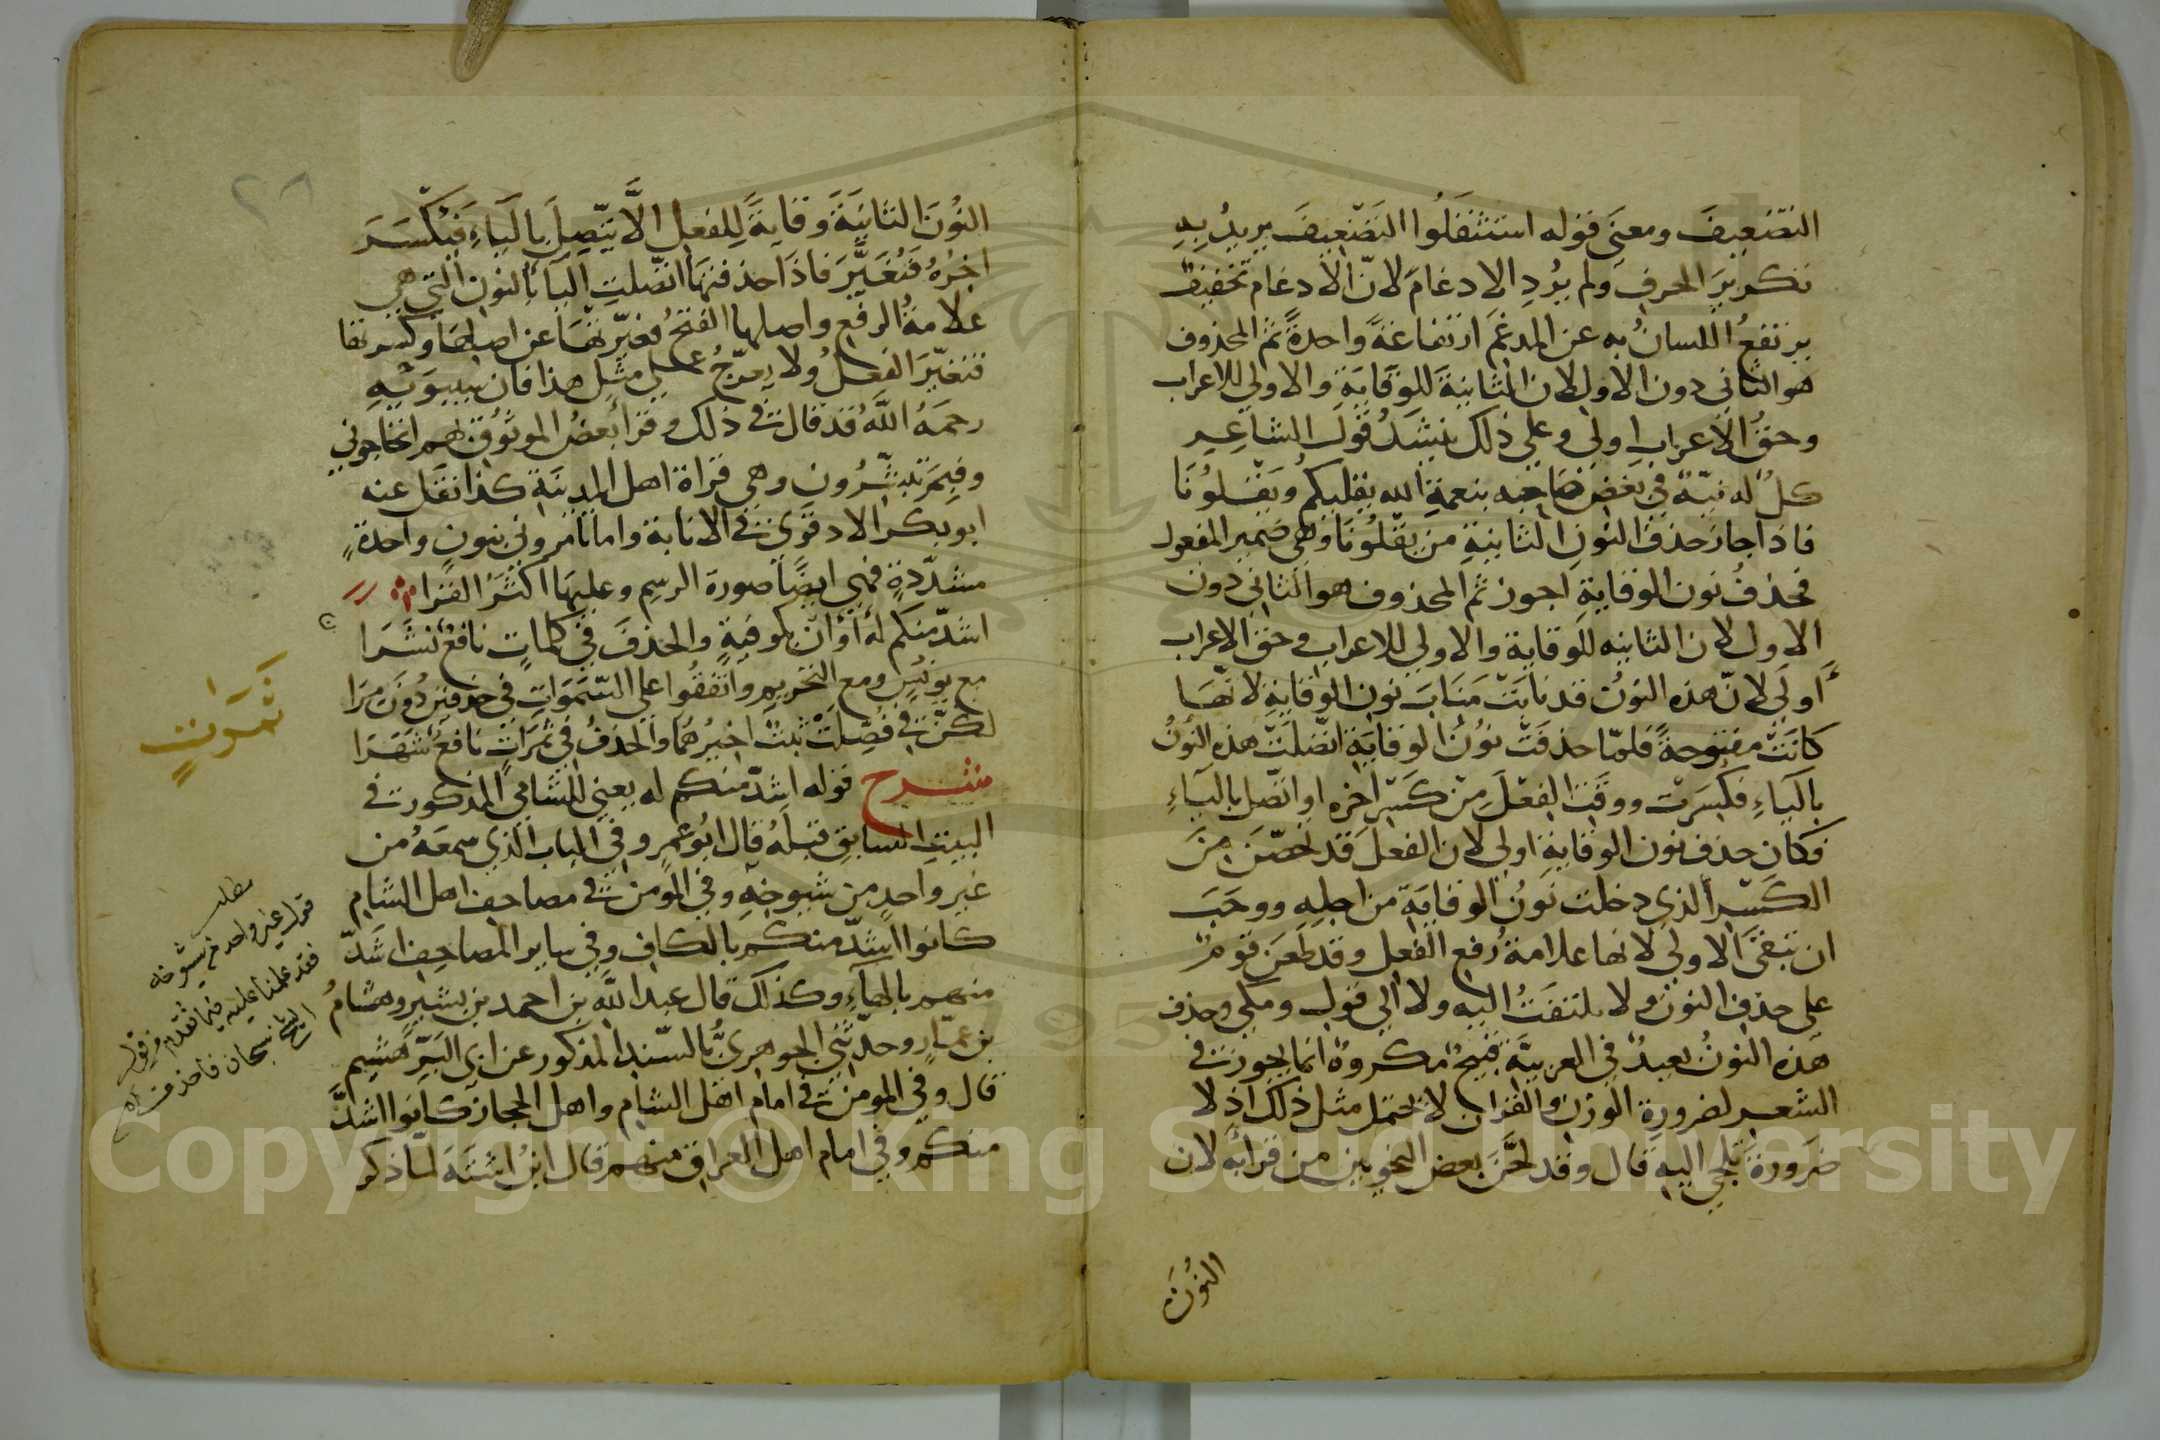 التضعيف ومعنى قوله استثقلوا التضعيف يريد به
تكرير الحرف ولم يرد الادغام لان الادغام تخفيف
يرتفع اللسان به عن المدغم ارتفاعة واحدة ثم المحذوف
هو الثاني دون الاول لان الثانية للوقاية والاولي للاعراب
وحق الاعراب اولى وعلي ذلك ينشد قول الشاعر
كل له نية في بغض صاحبه بنعمة الله نقليكم وتقلونا
فاذا جاز حذف النون الثانية من تقلونا وهي ضمير المفعول
فحذف نون الوقاية اجوز ثم المحذوف هو الثاني دون
الاول لان الثانيه للوقاية والاولي للاعراب وحق الاعراب
اولى لان هذه النون قد نابت مناب نون الوقاية لانها
كانت مفتوحة فلما حذفت نون الوقاية اتصلت هذه النون
بالياء فكسرت ووقت الفعل من كسر اخره او اتصل بالياء
فكان حذف نون الوقاية اولي لان الفعل قد تحصن من
الكسر الذي دخلت نون الوقاية من اجله ووجب
ان تبقى الاولي لانها علامة رفع الفعل وقد طعن قوم
على حذف النون ولا يلتفت اليه ولا الي قول ومكي وحذف
هذه النون بعيد في العربية قبيح مكروه انما يجوز في
الشعر لضرورة الوزن والقران لا تحتمل مثل ذلك اذ لا
ضرورة تلجي اليه قال وقد لحن بعض النحويين من قرابه لان
النون
النون الثانية وقاية للفعل الا يتصل بالياء فيكسر
اخره فتغير فاذا حذفتها اتصلت اليا بالنون التي هي
علامة الرفع واصلها الفتح فغيرتها عن اصلها وكسرتها
فتغير الفعل ولا يعرج علي مثل هذا فان سيبويه
رحمه الله قد قال في ذلك وقرأ بعض الموثوق بهم اتحاجوني
وفبم تبشرون وهي قراة اهل المدينة كذا نقل عنه
ابو بكر الادفوي في الابانة واما تامروني بنون واحدة
مشددة فهي ايضا صورة الرسم وعليها اكثر القرا
اشد منكم له او ان لكوفية والحذف في كلمات نافع نشرا
مع يونس ومع التحريم واتفقوا علي السموات في حذفين دون مرا
لكن في فصلت ثبت اخيرهما والحذف في ثمرات نافع شهرا
شرح قوله اشد منكم له يعني للشامي المذكور في
البيت السابق قبله قال ابو عمر وفي الباب الذي سمعه من
غير واحد من شيوخه وفي المومن في مصاحف اهل الشام
كانوا اشد منكم بالكاف وفي ساير المصاحف اشد
منهم بالهاء وكذلك قال عبد الله بن احمد بن بشير وهشام
بن عمار وحدثني الجوهري بالسند المذكور عن ابي البر هشيم
قال وفي المومن في امام اهل الشام واهل الحجاز كانوا اشد
منكم وفي امام اهل العراق منهم قال ابن اشتة لما ذكر
ثمرات
مطلب
قول غير واحد من شيوخه
فقد علمنا عليه فيما تقدم من قول
سبحان فاحذف